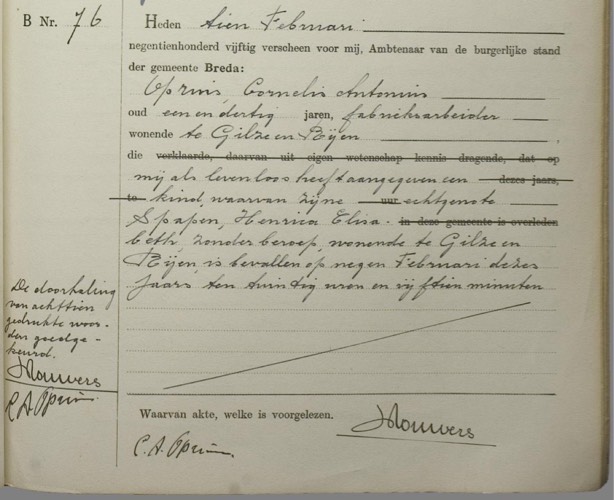 B Nr. 76
Heden tien Februari
negentienhonderd vijftig verscheen voor mij, Ambtenaar van de burgerlijke stand
der gemeente Breda:
Oprins, Cornelis Antonius
oud eenendertig jaren, fabrieksarbeider
wonende te Gilze en Rijen
die verklaarde, daarvan uit eigen wetenschap kennis dragende, dat op
mij als levenloos heeft aangegeven een dezes jaars,
te kind, waarvan zijne uur echtgenote
Spapen, Henrica Elisa- in deze gemeente is overleden
beth, zonder beroep, wonende te Gilze en
Rijen, is bevallen op negen Februari dezes
jaars ten twintig uren en vijftien minuten
De doorhaling
van achttien
gedrukte woor-
den goedge-
keurd.
C. A. Oprins
Waarvan akte, welke is voorgelezen.
C. A. Oprins